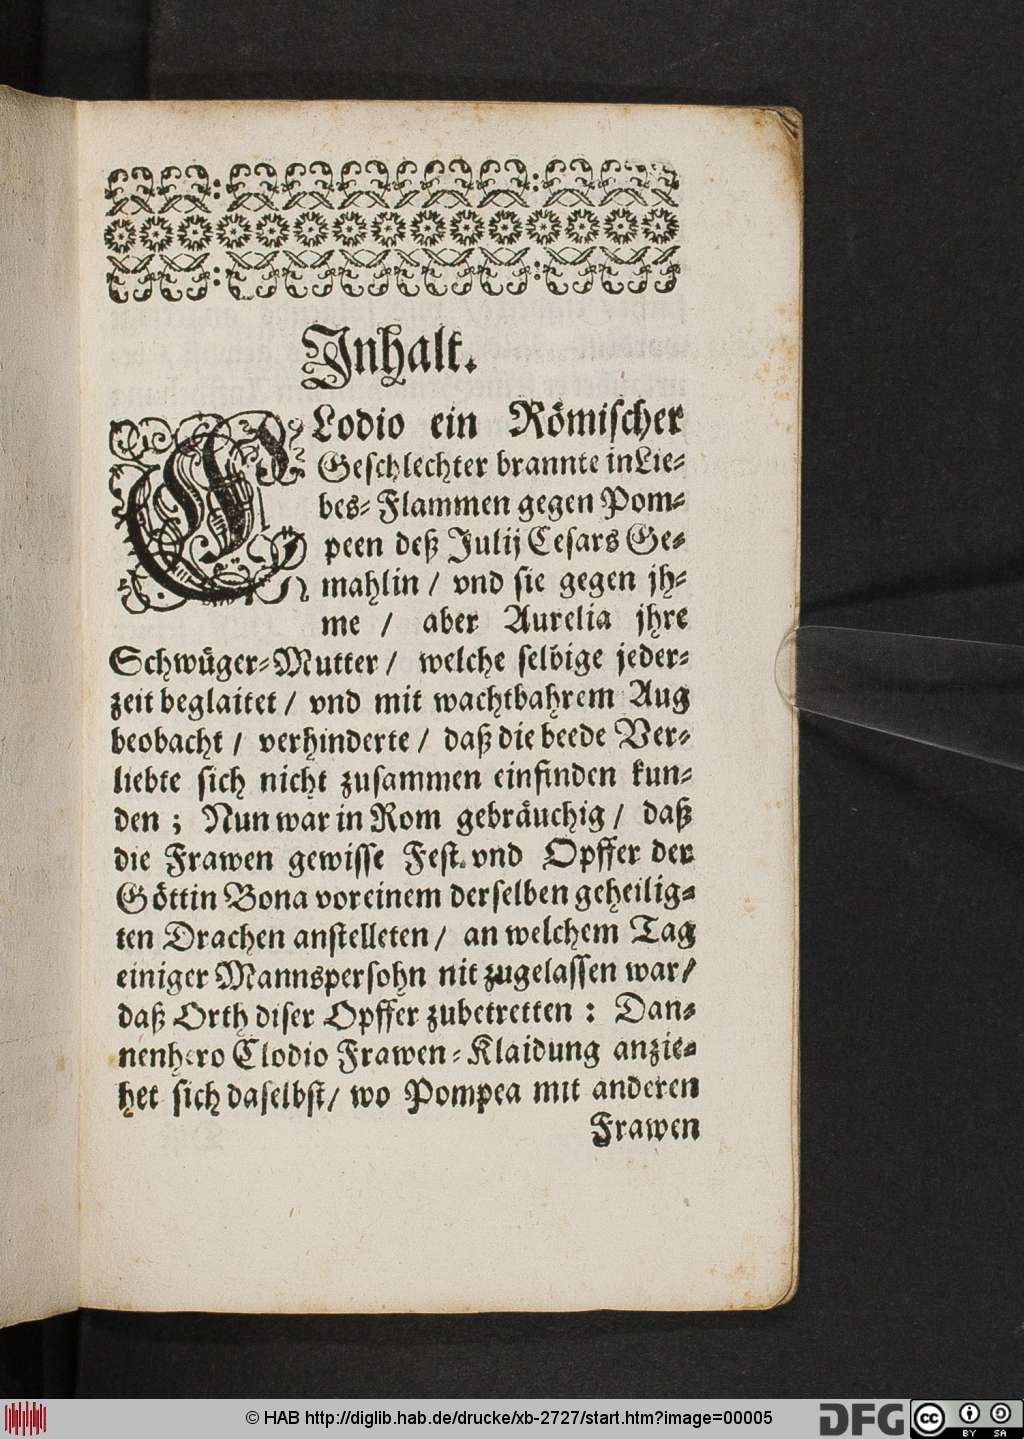 Inhalt.
CLodio ein Römischer
Geschlechter brannte in Lie-
bes-Flammen gegen Pom-
peen deß Julij Cesars Ge-
mahlin / vnd sie gegen jh-
me / aber Aurelia jhre
Schwüger-Mutter / welche selbige jeder-
zeit beglaitet / vnd mit wachtbahrem Aug
beobacht / verhinderte / daß die beede Ver-
liebte sich nicht zusammen einfinden kun-
den ; Nun war in Rom gebräuchig / daß
die Frawen gewisse Fest. vnd Opffer der
Göttin Bona vor einem derselben geheilig-
ten Drachen anstelleten / an welchem Tag
einiger Mannspersohn nit zugelassen war /
daß Orth diser Opffer zubetretten : Dan-
nenhero Clodio Frawen-Klaidung anzie-
het sich daselbst / wo Pompea mit anderen
Frawen
© HAB http://diglib.hab.de/drucke/xb-2727/start.htm?image=00005
DFG
cc BY SA